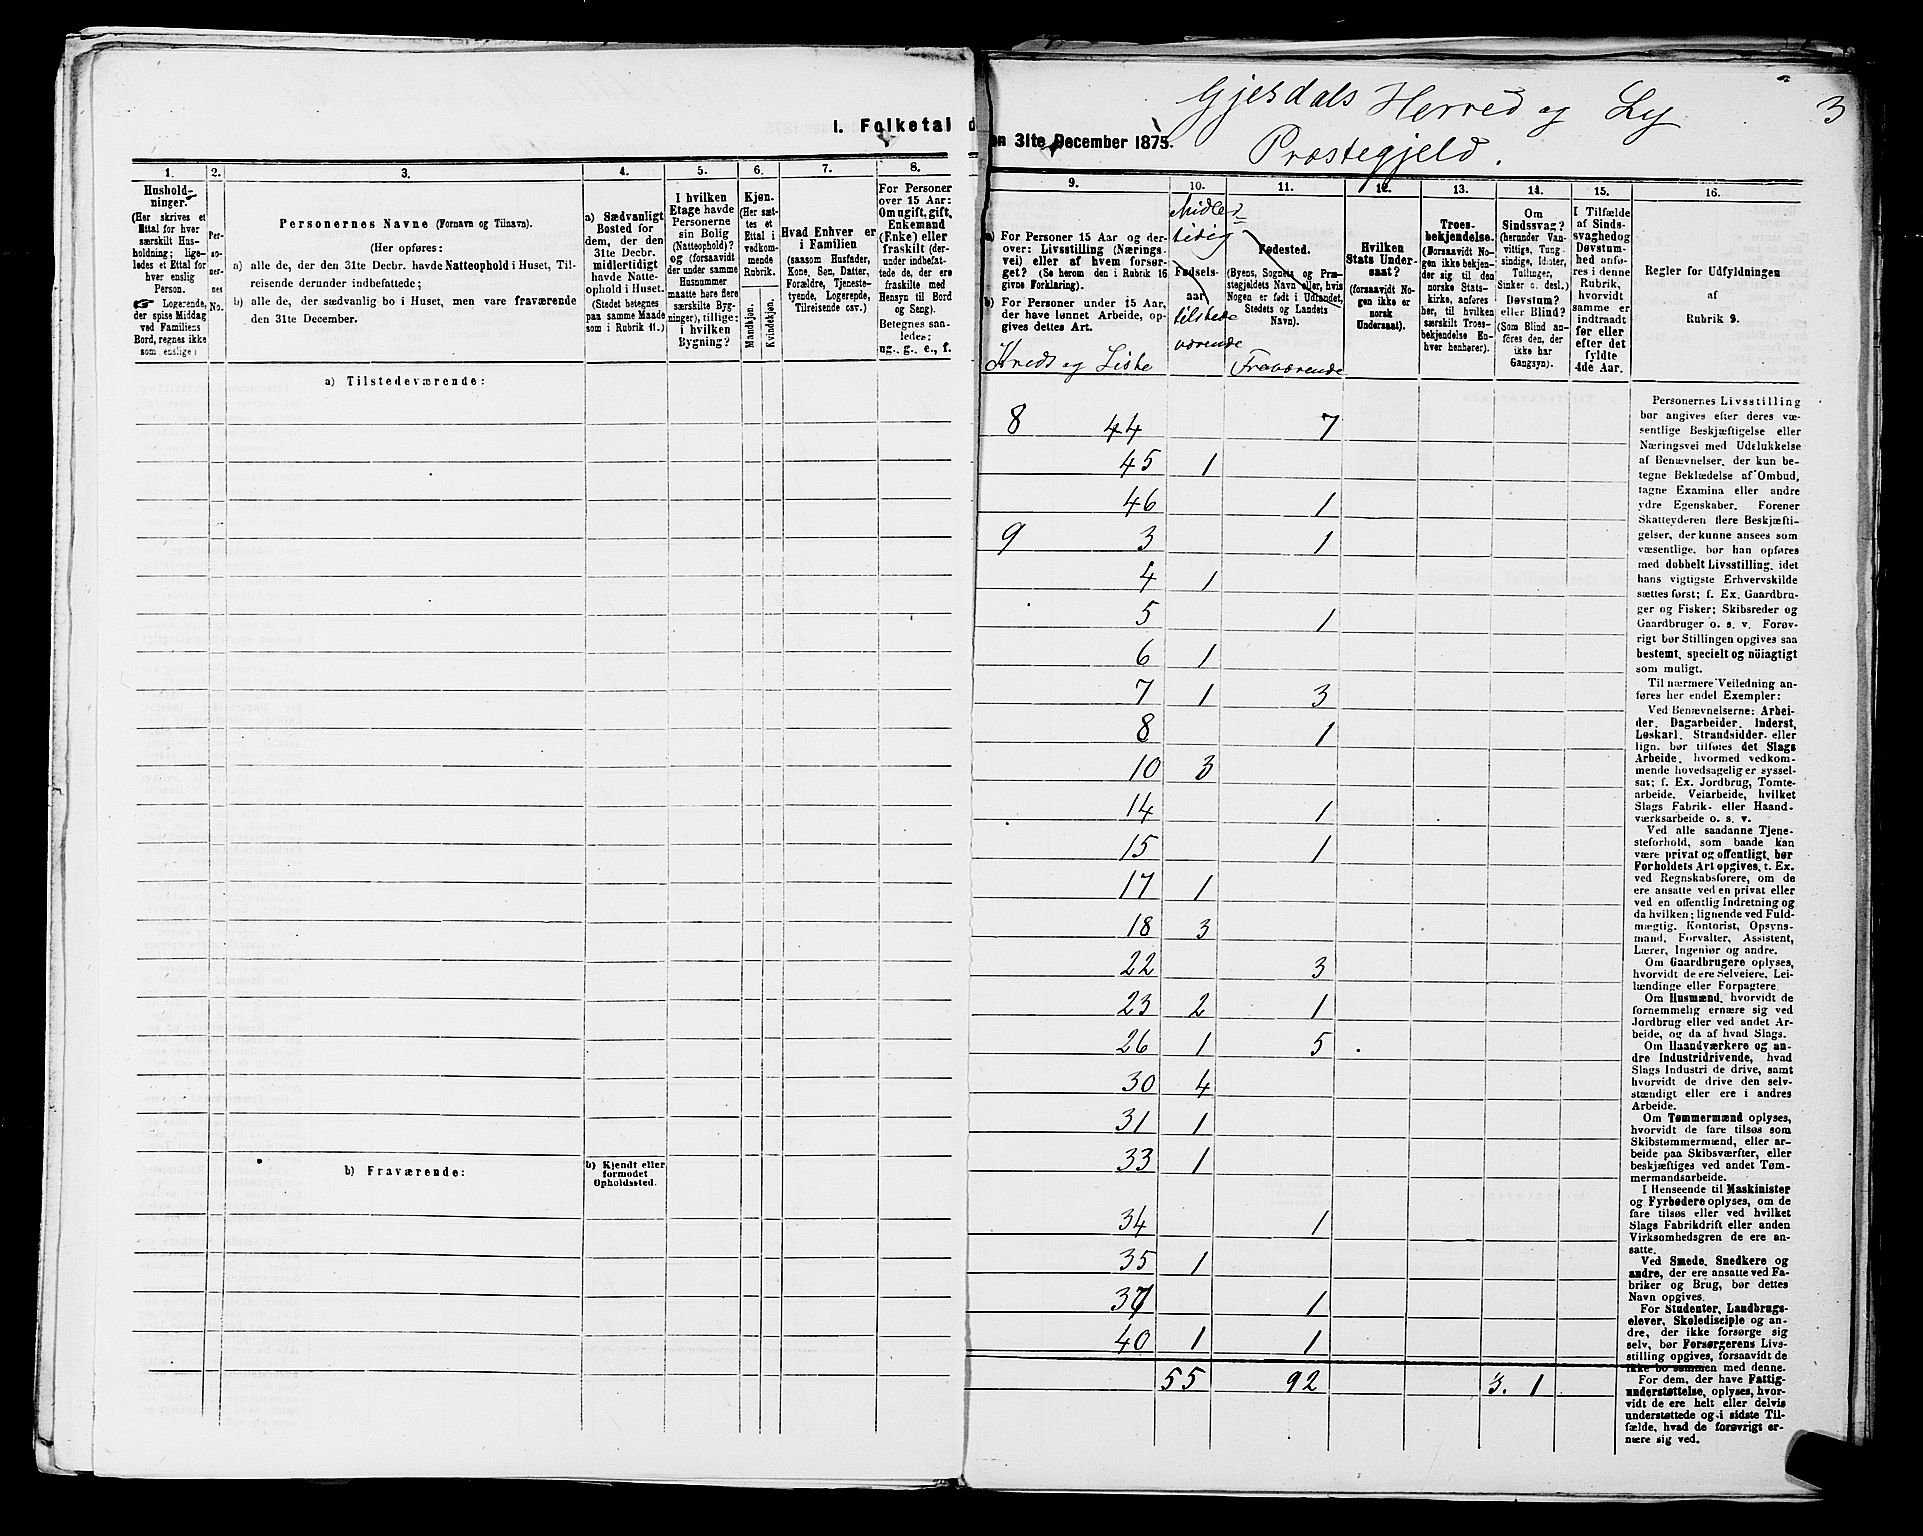 Gjesdals Herred og Ly
3
Præstegjeld.
I. Folketal d
en 31te December 1875.
1.
2.
3.
4.
5.
6.
7.
8.
Hushold-
ninger.
(Her skrives et
Ettal for hver
særskilt Hus-
holdning; lige-
ledes et Ettal for
hver enslig
Person.
☞ Logerende,
der spise Middag
ved Familiens
Bord, regnes ikke
som enslige.)
Per-
so-
ner-
nes
No.
Personernes Navne (Fornavn og Tilnavn).
(Her opføres:
a) alle de, der den 31te Decbr. havde Natteophold i Huset, Til-
reisende derunder indbefattede;
b) alle de, der sædvanlig bo i Huset, men vare fraværende
den 31te December.
a) Sædvanligt
Bosted for
dem, der den
31te Decbr.
midlertidigt
havde Natte-
ophold i Huset.
(Stedet betegnes
paa samme Maade
som i Rubrik 11.)
I hvilken
Etage havde
Personerne
sin Bolig
(Natteophold)?
og (forsaavidt
der under samme
Husnummer
maatte høre flere
særskilte Byg-
ninger), tillige:
i hvilken
Bygning?
Kjøn.
(Her sæt-
tes et
Ettal i
vedkom-
mende
Rubrik.
Mandkjøn.
Kvindekjøn.
Hvad Enhver er
i Familien
(saasom Husfader,
Kone, Søn, Datter,
Forældre, Tjeneste-
tyende, Logerende,
Tilreisende osv.)
For Personer
over 15 Aar:
Om ugift, gift,
Enkemand
(Enke) eller
fraskilt (der-
under indbefat-
tede de, der ere
fraskilte med
Hensyn til Bord
og Seng).
Betegnes saa-
ledes:
ug., g., e., f.
a) Tilstedeværende:
b) Fraværende:
b) Kjendt eller
formodet
Opholdssted.
9.
10.
11.
12.
13.
14.
15.
16.
a) For Personer 15 Aar og der-
over: Livsstilling (Nærings-
vei) eller af hvem forsør-
get? (Se herom den i Rubrik 16
givne Forklaring).
b) For Personer under 15 Aar,
der have lønnet Arbeide, op-
gives dettes Art.
Kreds og Liste
Midler
tidig
Fødsels-
aar
tilstede
værende
Fødested.
(Byens, Sognets og Præ-
stegjeldets Navn eller, hvis
Nogen er født i Udlandet,
Stedets og Landets
Navn).
Fraværende
Hvilken
Stats Under-
saat?
(forsaavidt No-
gen ikke er
norsk
Undersaat).
Troes-
bekjendelse.
(Forsaavidt No-
gen ikke bekjen-
der sig til den
norske Stats-
kirke, anføres
her, til hvilken
særskilt Troes-
bekjendelse En-
hver henhører).
Om
Sindssvag?
(herunder Van-
vittige, Tung-
sindige, Idioter,
Tullinger,
Sinker o. desl.)
Døvstum?
eller Blind?
(Som Blind an-
føres den, der
ikke har
Gangsyn).
I Tilfælde
af Sinds-
svaghed og
Døvstum-
hed anfø-
res i denne
Rubrik,
hvorvidt
samme er
indtraadt
før eller
efter det
fyldte
4de Aar.
Regler for Udfyldningen
af
Rubrik 9.
8 44 7
45 1
46 1
9 3 1
4 1
5 1
6 1
7 1 3
8 1
10 3
14 1
15 1
17 1
18 3
22 3
23 2 1
26 1 5
30 4
31 1
33 1
34 1
35 1
37 1
40 1 1
55 92 3. 1
Personernes Livsstilling
bør angives efter deres væ-
sentlige Beskjæftigelse eller
Næringsvei med Udelukkelse
af Benævnelser, der kun be-
tegne Beklædelse af Ombud,
tagne Examina eller andre
ydre Egenskaber. Forener
Skatteyderen flere Beskjæfti-
gelser, der kunne ansees som
væsentlige, bør han opføres
med dobbelt Livsstilling, idet
hans vigtigste Erhvervskilde
sættes først; f. Ex. Gaardbru-
ger og Fisker; Skibsreder og
Gaardbruger o. s. v. Forøv-
rigt bør Stillingen opgives saa
bestemt, specielt og nöiagtigt
som muligt.
Til nærmere Veiledning an-
føres her endel Exempler:
Ved Benævnelserne: Arbei-
der, Dagarbeider, Inderst,
Løskarl, Strandsidder eller
lign. bør tilføies det Slags
Arbeide, hvormed vedkom-
mende hovedsagelig er syssel-
sat; f. Ex. Jordbrug, Tomte-
arbeide, Veiarbeide, hvilket
Slags Fabrik- eller Haand-
værksarbeide o. s. v.
Ved alle saadanne Tjene-
steforhold, som baade kan
være privat og offentligt, bør
Forholdets Art opgives, t. Ex.
ved Regnskabsførere, om de
ere ansatte ved en privat eller
ved en offentlig Indretning og
da hvilken; lignende ved Fuld-
mægtig, Kontorist, Opsyns-
mand, Forvalter, Assistent,
Lærer, Ingeniør og andre.
Om Gaardbrugere oplyses,
hvorvidt de ere Selveiere, Lei-
lændinge eller Forpagtere.
Om Husmænd, hvorvidt de
fornemmelig ernære sig ved
Jordbrug eller ved andet Ar-
beide, og da af hvad Slags.
Om Haandværkere og an-
dre Industridrivende, hvad
Slags Industri de drive, samt
hvorvidt de drive den selv-
stændigt eller ere i andres
Arbeide.
Om Tømmermænd oplyses,
hvorvidt de fare tilsøs som
Skibstømmermænd, eller ar-
beide paa Skibsværfter, eller
beskjæftiges ved andet Tøm-
mermandsarbeide.
I Henseende til Maskinister
og Fyrbødere oplyses, om de
fare tilsøs eller ved hvilket
Slags Fabrikdrift eller anden
Virksomhedsgren de ere an-
satte.
Ved Smede, Snedkere og
andre, der ere ansatte ved Fa-
briker og Brug, bør dettes
Navn opgives.
For Studenter, Landbrugs-
elever, Skoledisciple og an-
dre, der ikke forsørge sig
selv, bør Forsørgerens Livs-
stilling opgives, forsaavidt de
ikke bo sammen med denne.
For dem, der have Fattig-
understøttelse, oplyses, hvor-
vidt de ere helt eller delvis
understøttede og i sidste Til-
fælde, hvad de forøvrigt er-
nære sig ved.